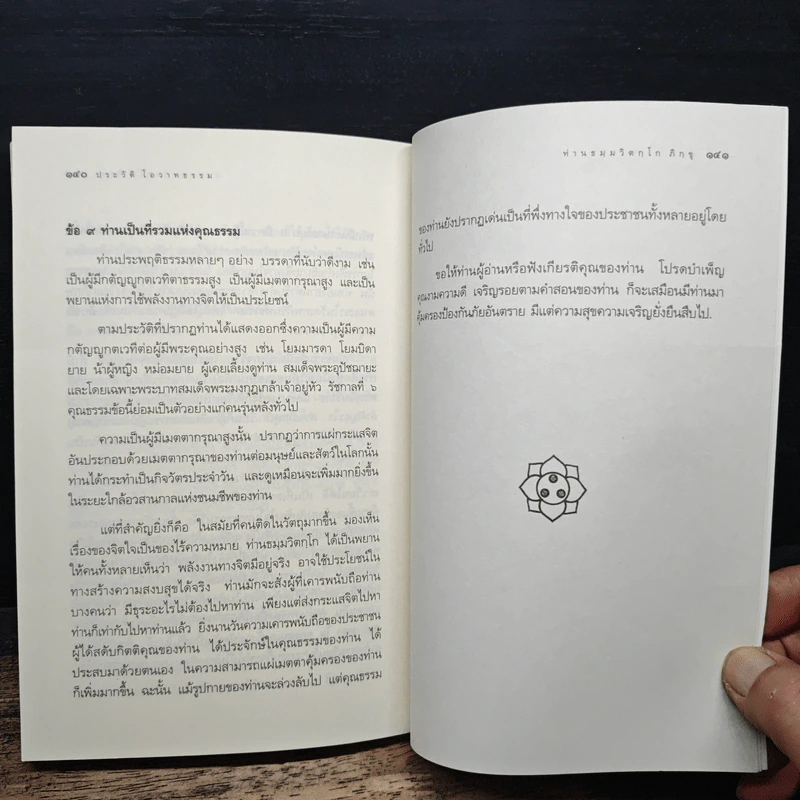 ๑๔๐ ประวัติ โอวาทธรรม
ข้อ ๙ ท่านเป็นที่รวมแห่งคุณธรรม
ท่านประพฤติธรรมหลายๆ อย่าง บรรดาที่นับว่าดีงาม เช่น
เป็นผู้มีกตัญญูกตเวทิตาธรรมสูง เป็นผู้มีเมตตากรุณาสูง และเป็น
พยานแห่งการใช้พลังงานทางจิตให้เป็นประโยชน์
ตามประวัติที่ปรากฏท่านได้แสดงออกซึ่งความเป็นผู้มีความ
กตัญญูกตเวทีต่อผู้มีพระคุณอย่างสูง เช่น โยมมารดา โยมบิดา
ยาย น้าผู้หญิง หม่อมยาย ผู้เคยเลี้ยงดูท่าน สมเด็จพระอุปัชฌายะ
และโดยเฉพาะพระบาทสมเด็จพระมงกุฎเกล้าเจ้าอยู่หัว รัชกาลที่ ๖
คุณธรรมข้อนี้ย่อมเป็นตัวอย่างแก่คนรุ่นหลังทั่วไป
ความเป็นผู้มีเมตตากรุณาสูงนั้น ปรากฏว่าการแผ่กระแสจิต
อันประกอบด้วยเมตตากรุณาของท่านต่อมนุษย์และสัตว์ในโลกนั้น
ท่านได้กระทำเป็นกิจวัตรประจำวัน และดูเหมือนจะเพิ่มมากยิ่งขึ้น
ในระยะใกล้อวสานกาลแห่งชนมชีพของท่าน
แต่ที่สำคัญยิ่งก็คือ ในสมัยที่คนติดในวัตถุมากขึ้น มองเห็น
เรื่องของจิตใจเป็นของไร้ความหมาย ท่านธมฺมวิตกฺโก ได้เป็นพยาน
ให้คนทั้งหลายเห็นว่า พลังงานทางจิตมีอยู่จริง อาจใช้ประโยชน์ใน
ทางสร้างความสงบสุขได้จริง ท่านมักจะสั่งผู้ที่เคารพนับถือท่าน
บางคนว่า มีธุระอะไรไม่ต้องไปหาท่าน เพียงแต่ส่งกระแสจิตไปหา
ท่านก็เท่ากับไปหาท่านแล้ว ยิ่งนานวันความเคารพนับถือของประชาชน
ผู้ได้สดับกิตติคุณของท่าน ได้ประจักษ์ในคุณธรรมของท่าน ได้
ประสบมาด้วยตนเอง ในความสามารถแผ่เมตตาคุ้มครองของท่าน
ก็เพิ่มมากขึ้น ฉะนั้น แม้รูปกายของท่านจะล่วงลับไป แต่คุณธรรม
ท่านธมฺมวิตกฺโก ภิกฺขุ ๑๔๑
ของท่านยังปรากฏเด่นเป็นที่พึ่งทางใจของประชาชนทั้งหลายอยู่โดย
ทั่วไป
ขอให้ท่านผู้อ่านหรือฟังเกียรติคุณของท่าน โปรดบำเพ็ญ
คุณงามความดี เจริญรอยตามคำสอนของท่าน ก็จะเสมือนมีท่านมา
คุ้มครองป้องกันภัยอันตราย มีแต่ความสุขความเจริญยั่งยืนสืบไป.